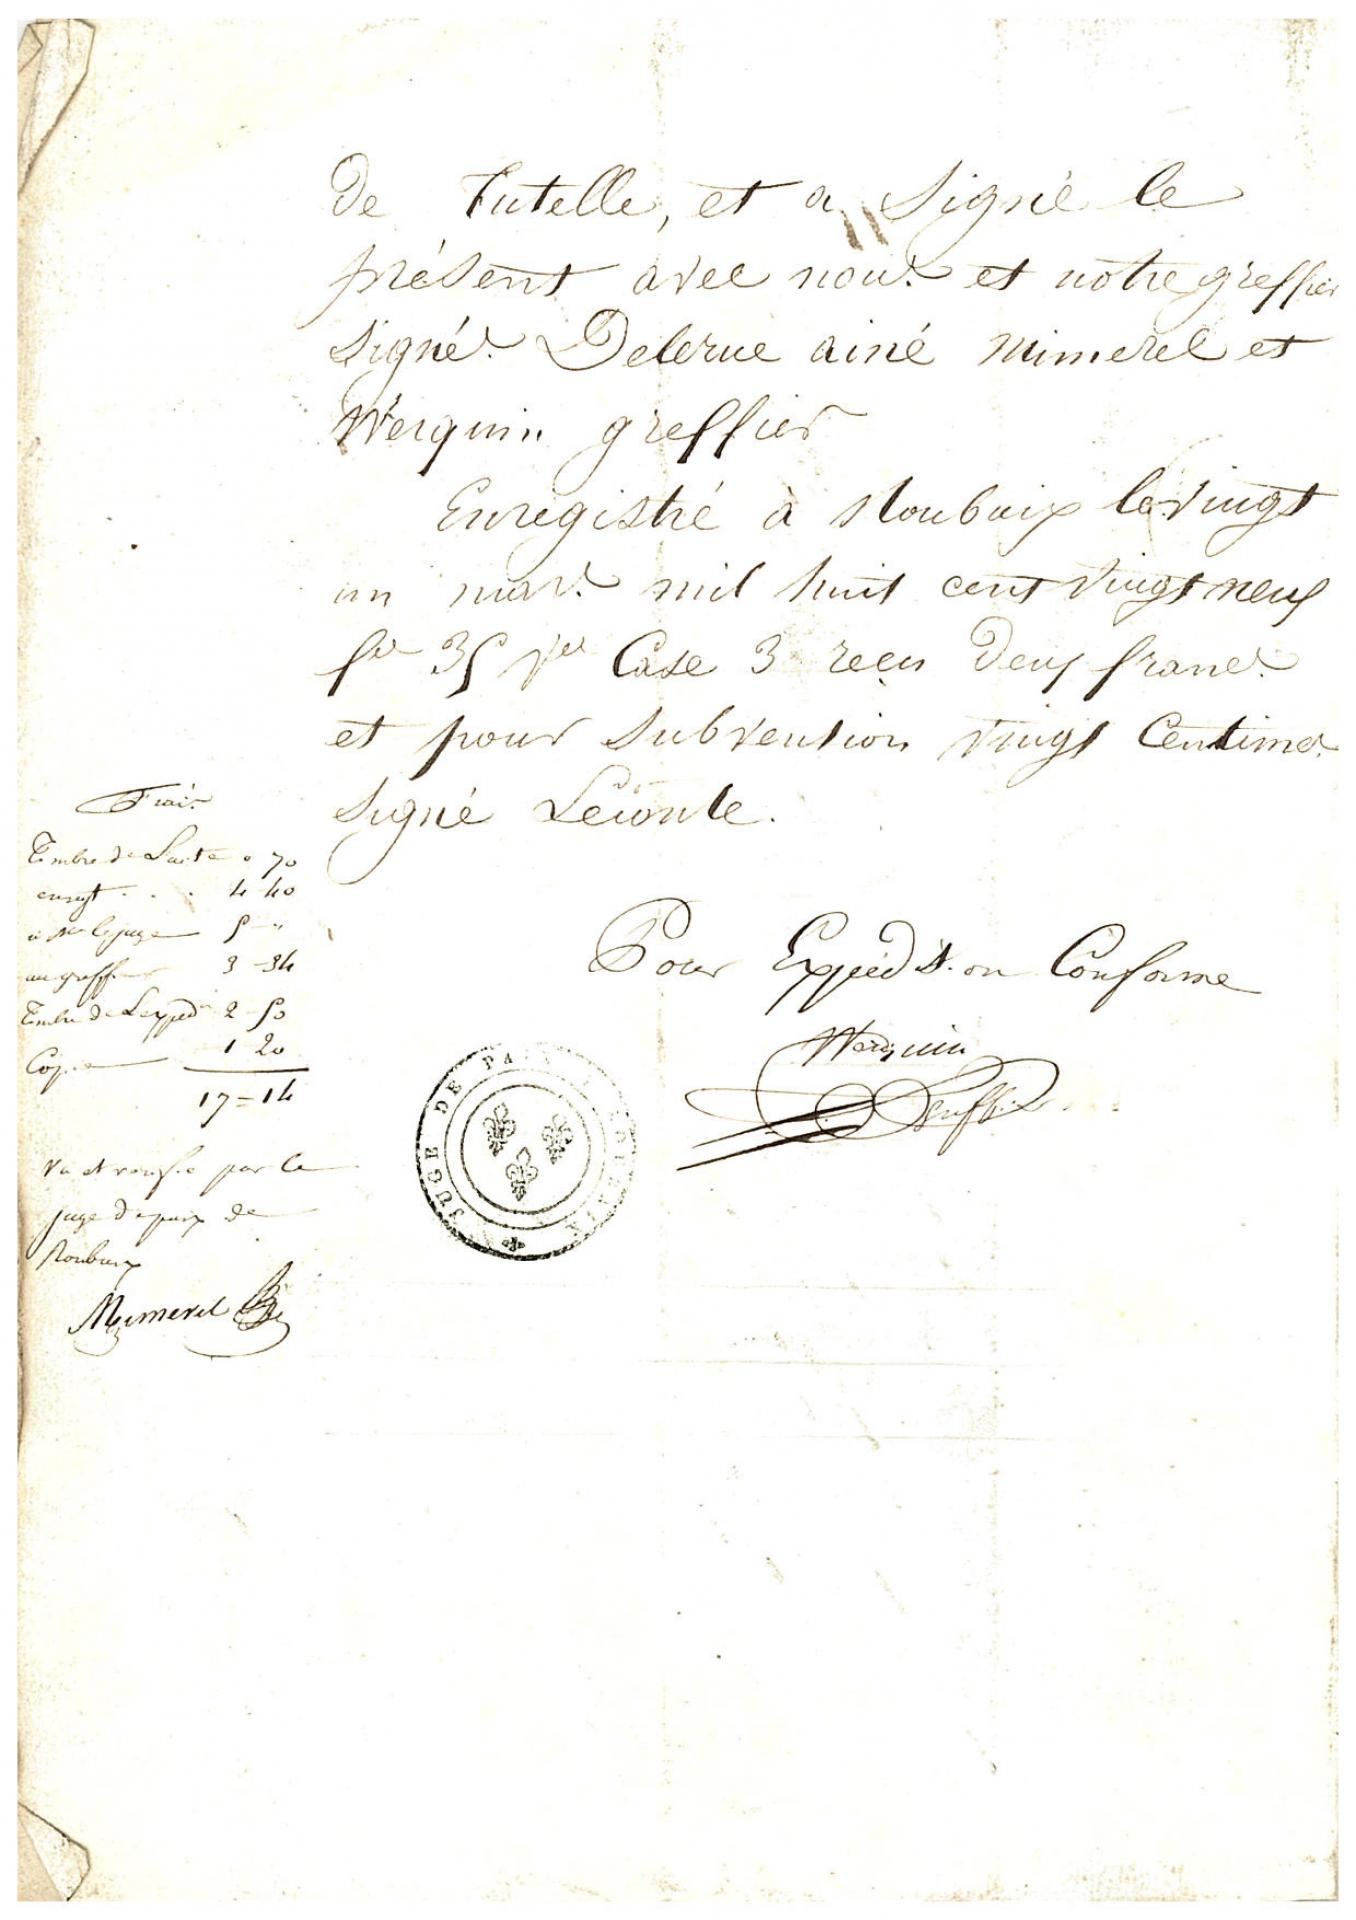 de Tutelle, et a Signé le
présent avec nous et notre greffier
Signés Delerue ainé Mimerel et
Werquin greffier
Enregistré à Roubaix le vingt
un mars mil huit cent vingt neuf
fo 35 Case 3 reçu deux francs
et pour Subvention vingt Centimes
Signé Leconte.
Pour Expédition Conforme
Werquin
Greffier
Frais
Timbre de L'acte " 70
enregt . . . 4 40
à Mr le juge 5 - "
au greffier 3 - 34
Timbre de L'expedn 2 - 50
Copie 1 20
17 = 14
Vu et vérifié par le
juge de paix de
Roubaix
Mimerel
JUGE DE PAIX ROUBAIX